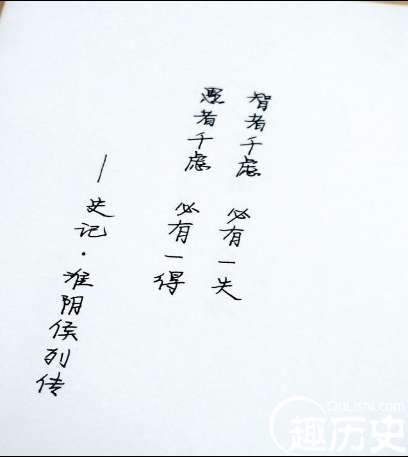 智者千虑 必有一失
愚者千虑 必有一得
—史记·淮阴侯列传
QuLishi.com
趣历史